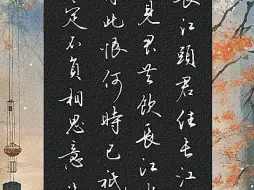 長江頭君住長江
見君共飲長江水
此恨何時已祇
定不負相思意